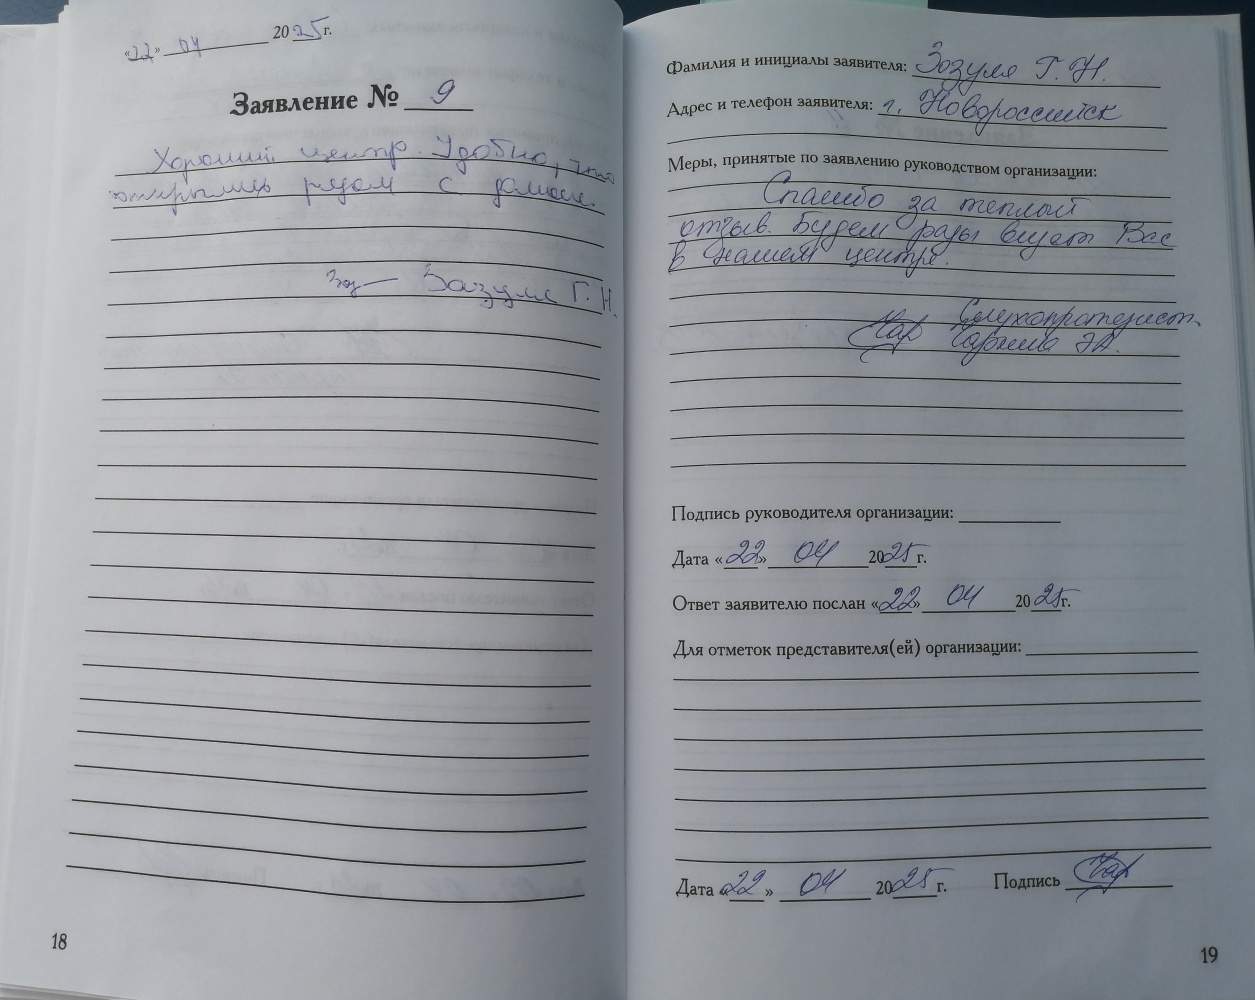 «22» 04 2025г.
Заявление № 9
Хороший центр. Удобно, что
открылись рядом с домом.
Зозуля Г. Н.
18
Фамилия и инициалы заявителя: Зозуля Г. Н.
Адрес и телефон заявителя: г. Новороссийск
Меры, принятые по заявлению руководством организации:
Спасибо за теплый
отзыв. Будем рады видеть Вас
в нашем центре.
Слухопротезист
Э.А.
Подпись руководителя организации:
Дата «22» 04 2025г.
Ответ заявителю послан «22» 04 2025г.
Для отметок представителя(ей) организации:
Дата «22» 04 2025г. Подпись
19